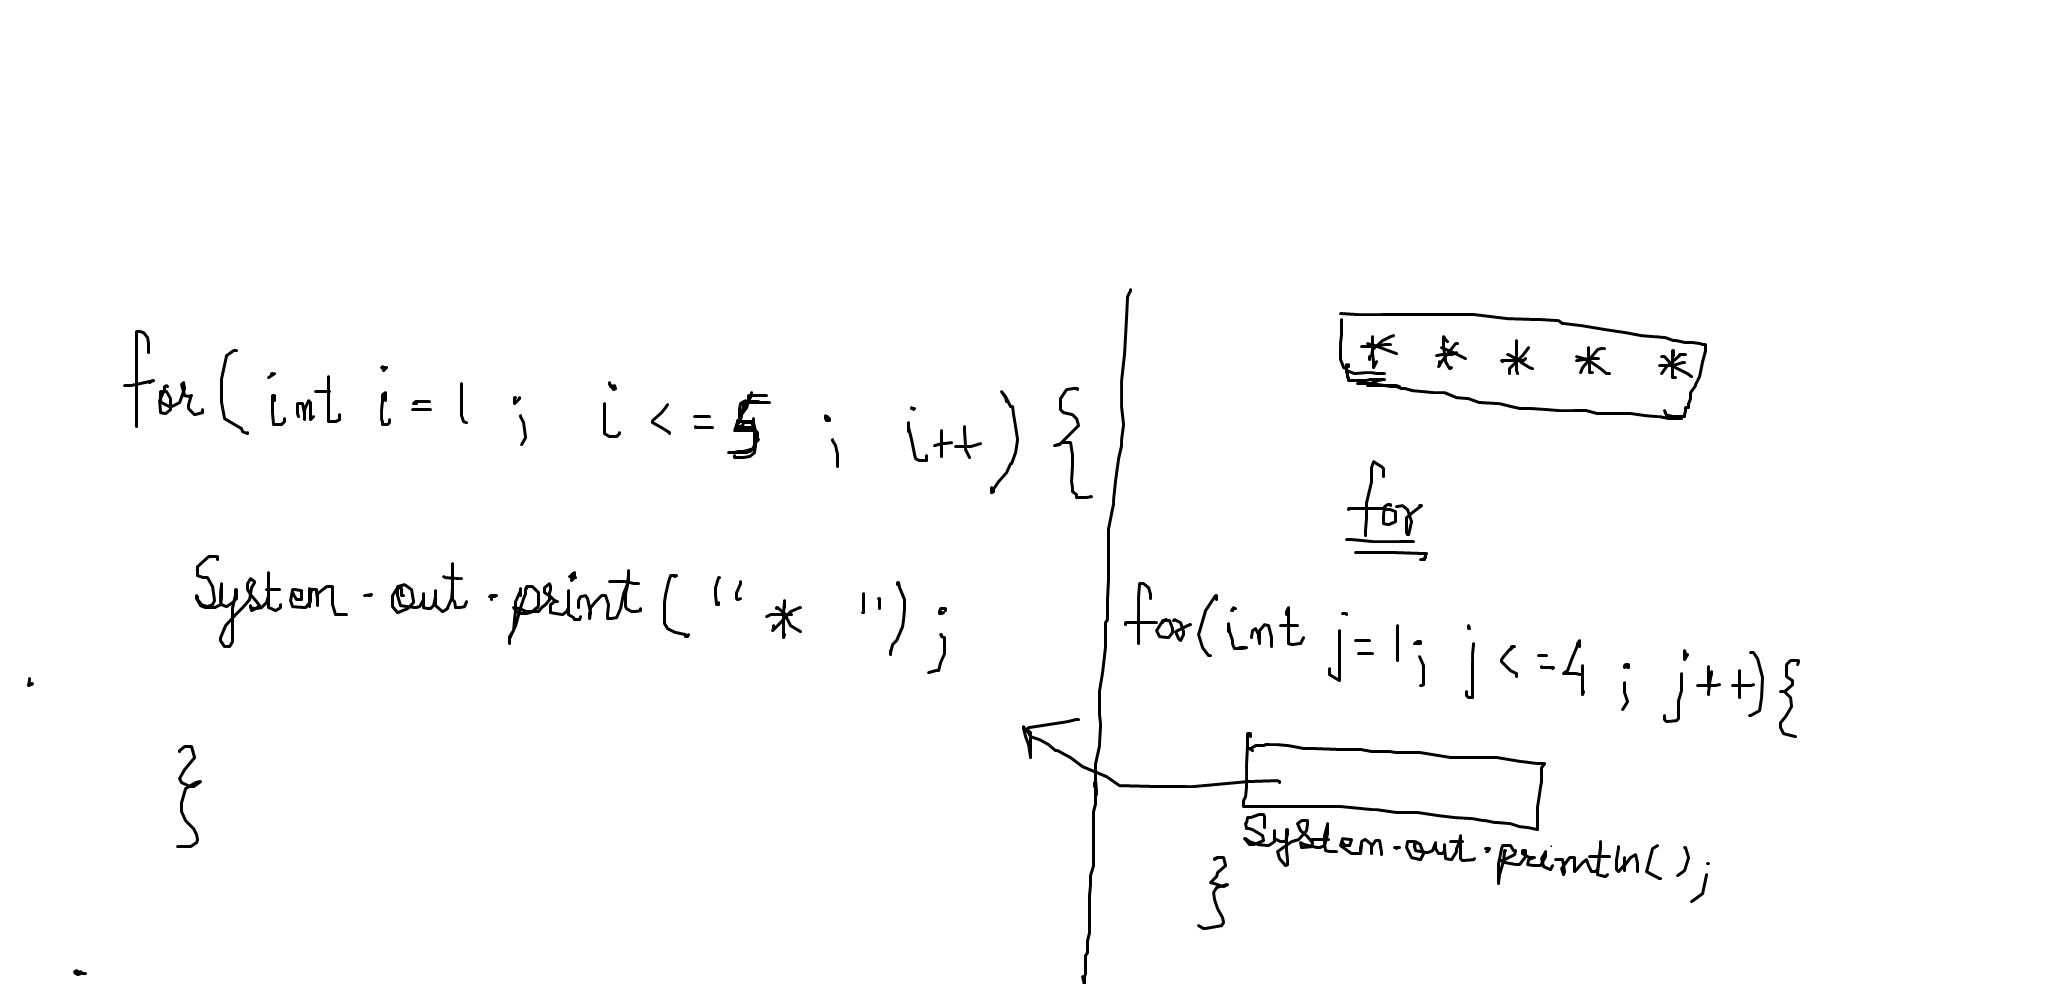 for(int i=1 ; i<=5 ; i++){
System.out.print("* ");
}
* * * * *
for
for(int j=1; j<=4 ; j++){
System.out.println();
}